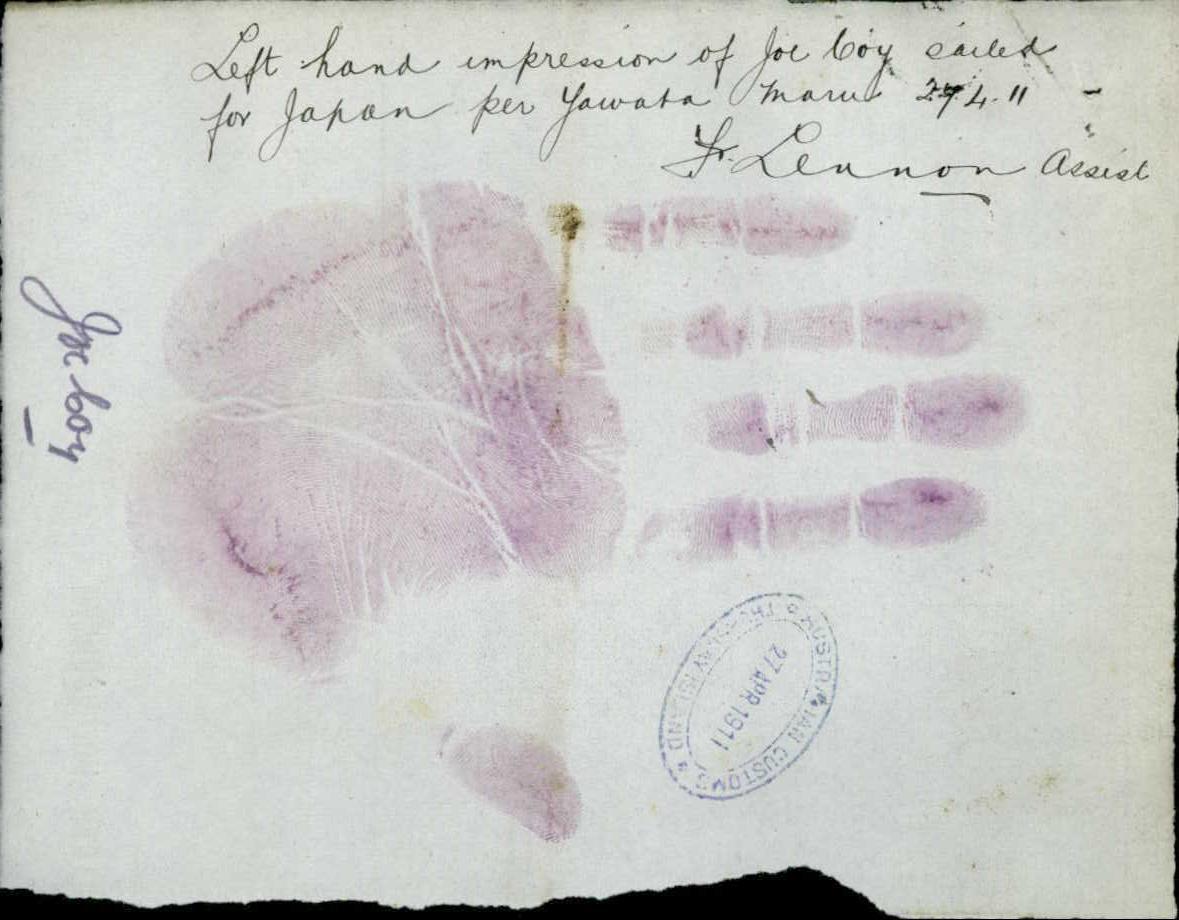 Left hand impression of Joe Coy sailed
for Japan per Yawata Maru 27.4.11
Fr. Lennon Assist
Joe Coy
AUSTRALIAN CUSTOMS
THURSDAY ISLAND
27 APR 1911